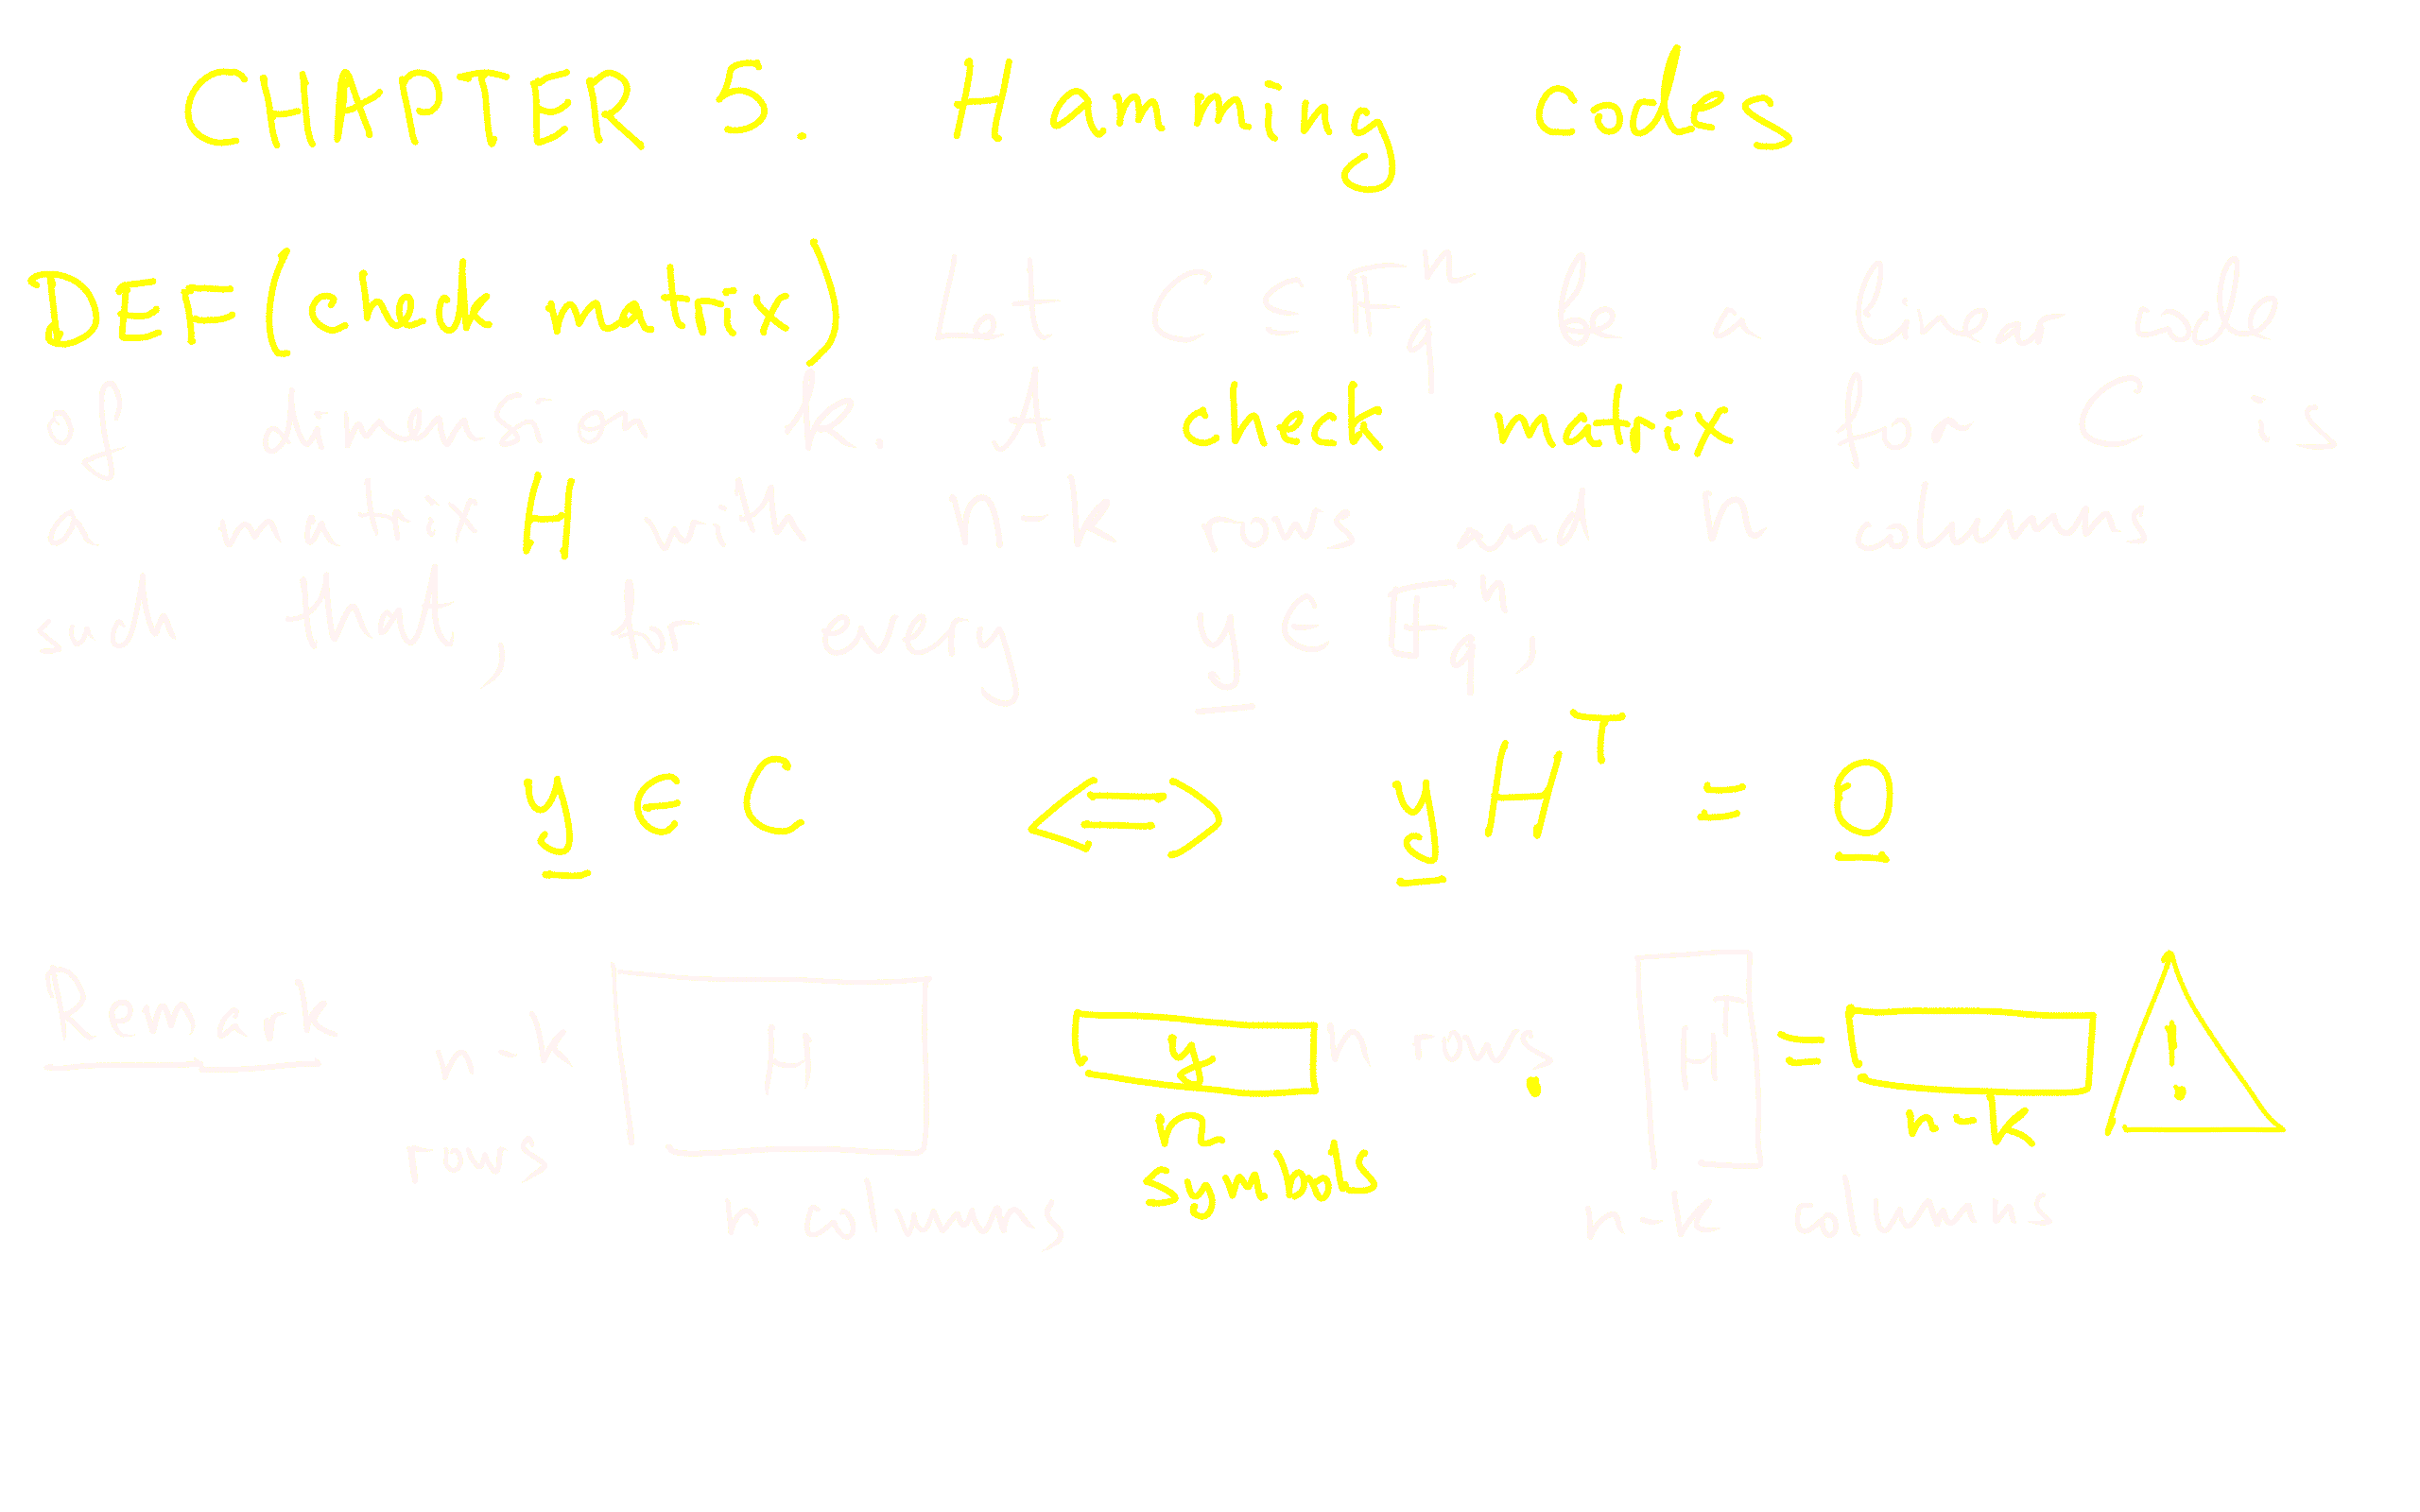 CHAPTER 5. Hamming codes
DEF (check matrix) Let C ⊆ 𝔽_q^n be a linear code
of dimension k. A check matrix for C is
a matrix H with n-k rows and n columns
such that, for every y ∈ 𝔽_q^n,
y ∈ C ⟺ y H^T = 0
Remark n-k rows H n columns
y n symbols n rows H^T n-k columns = n-k !